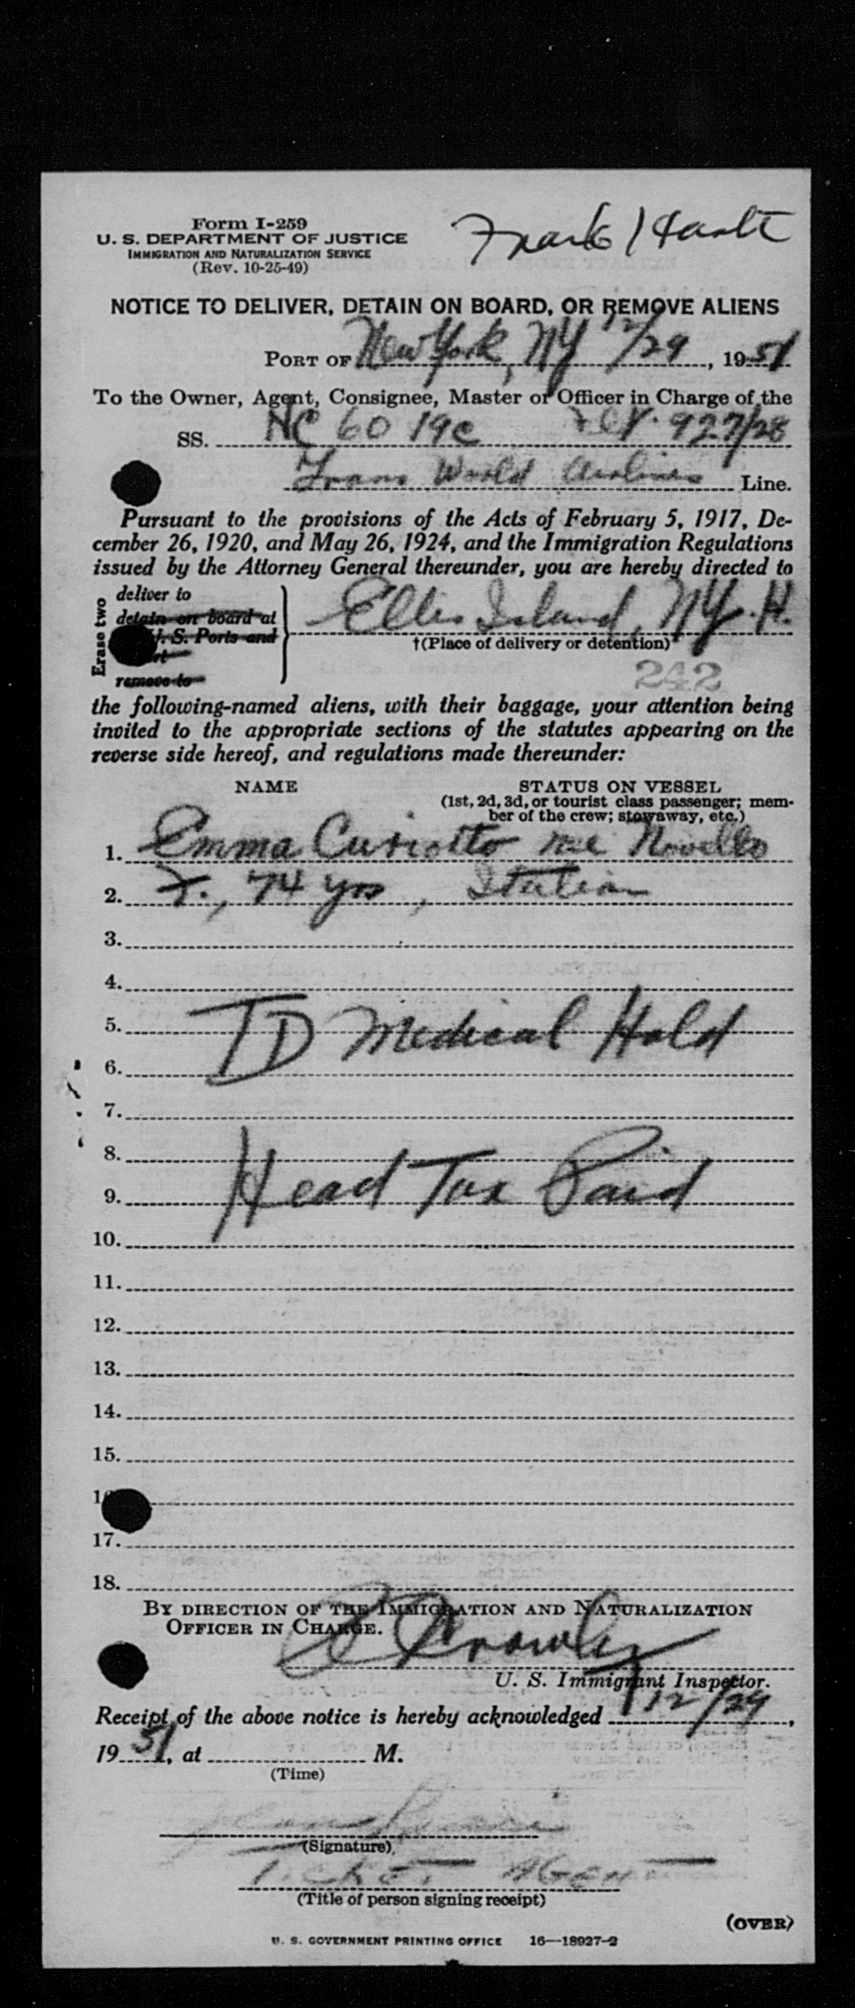 Form I-259
U. S. DEPARTMENT OF JUSTICE
IMMIGRATION AND NATURALIZATION SERVICE
(Rev. 10-25-49)
Frank
NOTICE TO DELIVER, DETAIN ON BOARD, OR REMOVE ALIENS
PORT OF New York, NY 12/29, 1951
To the Owner, Agent, Consignee, Master or Officer in Charge of the
SS. NC 60 19c 927/28
Trans World Airlines Line.
Pursuant to the provisions of the Acts of February 5, 1917, De-
cember 26, 1920, and May 26, 1924, and the Immigration Regulations
issued by the Attorney General thereunder, you are hereby directed to
Erase two
deliver to
detain on board at
U. S. Ports and
remove to
Ellis Island, NY. H.
†(Place of delivery or detention)
242
the following-named aliens, with their baggage, your attention being
invited to the appropriate sections of the statutes appearing on the
reverse side hereof, and regulations made thereunder:
NAME STATUS ON VESSEL
(1st, 2d, 3d, or tourist class passenger; mem-
ber of the crew; stowaway, etc.)
1. Emma Curiotto nee Novello
2. F., 74 yrs, Italian
3.
4.
5. TD Medical Hold
6.
7.
8.
9. Head Tax Paid
10.
11.
12.
13.
14.
15.
16
17.
18.
BY DIRECTION OF THE IMMIGRATION AND NATURALIZATION
OFFICER IN CHARGE.
Crowley
U. S. Immigrant Inspector.
Receipt of the above notice is hereby acknowledged 12/29,
1951, at M.
(Time)
(Signature)
TICKET AGENT
(Title of person signing receipt)
(OVER)
U. S. GOVERNMENT PRINTING OFFICE 16—18927-2